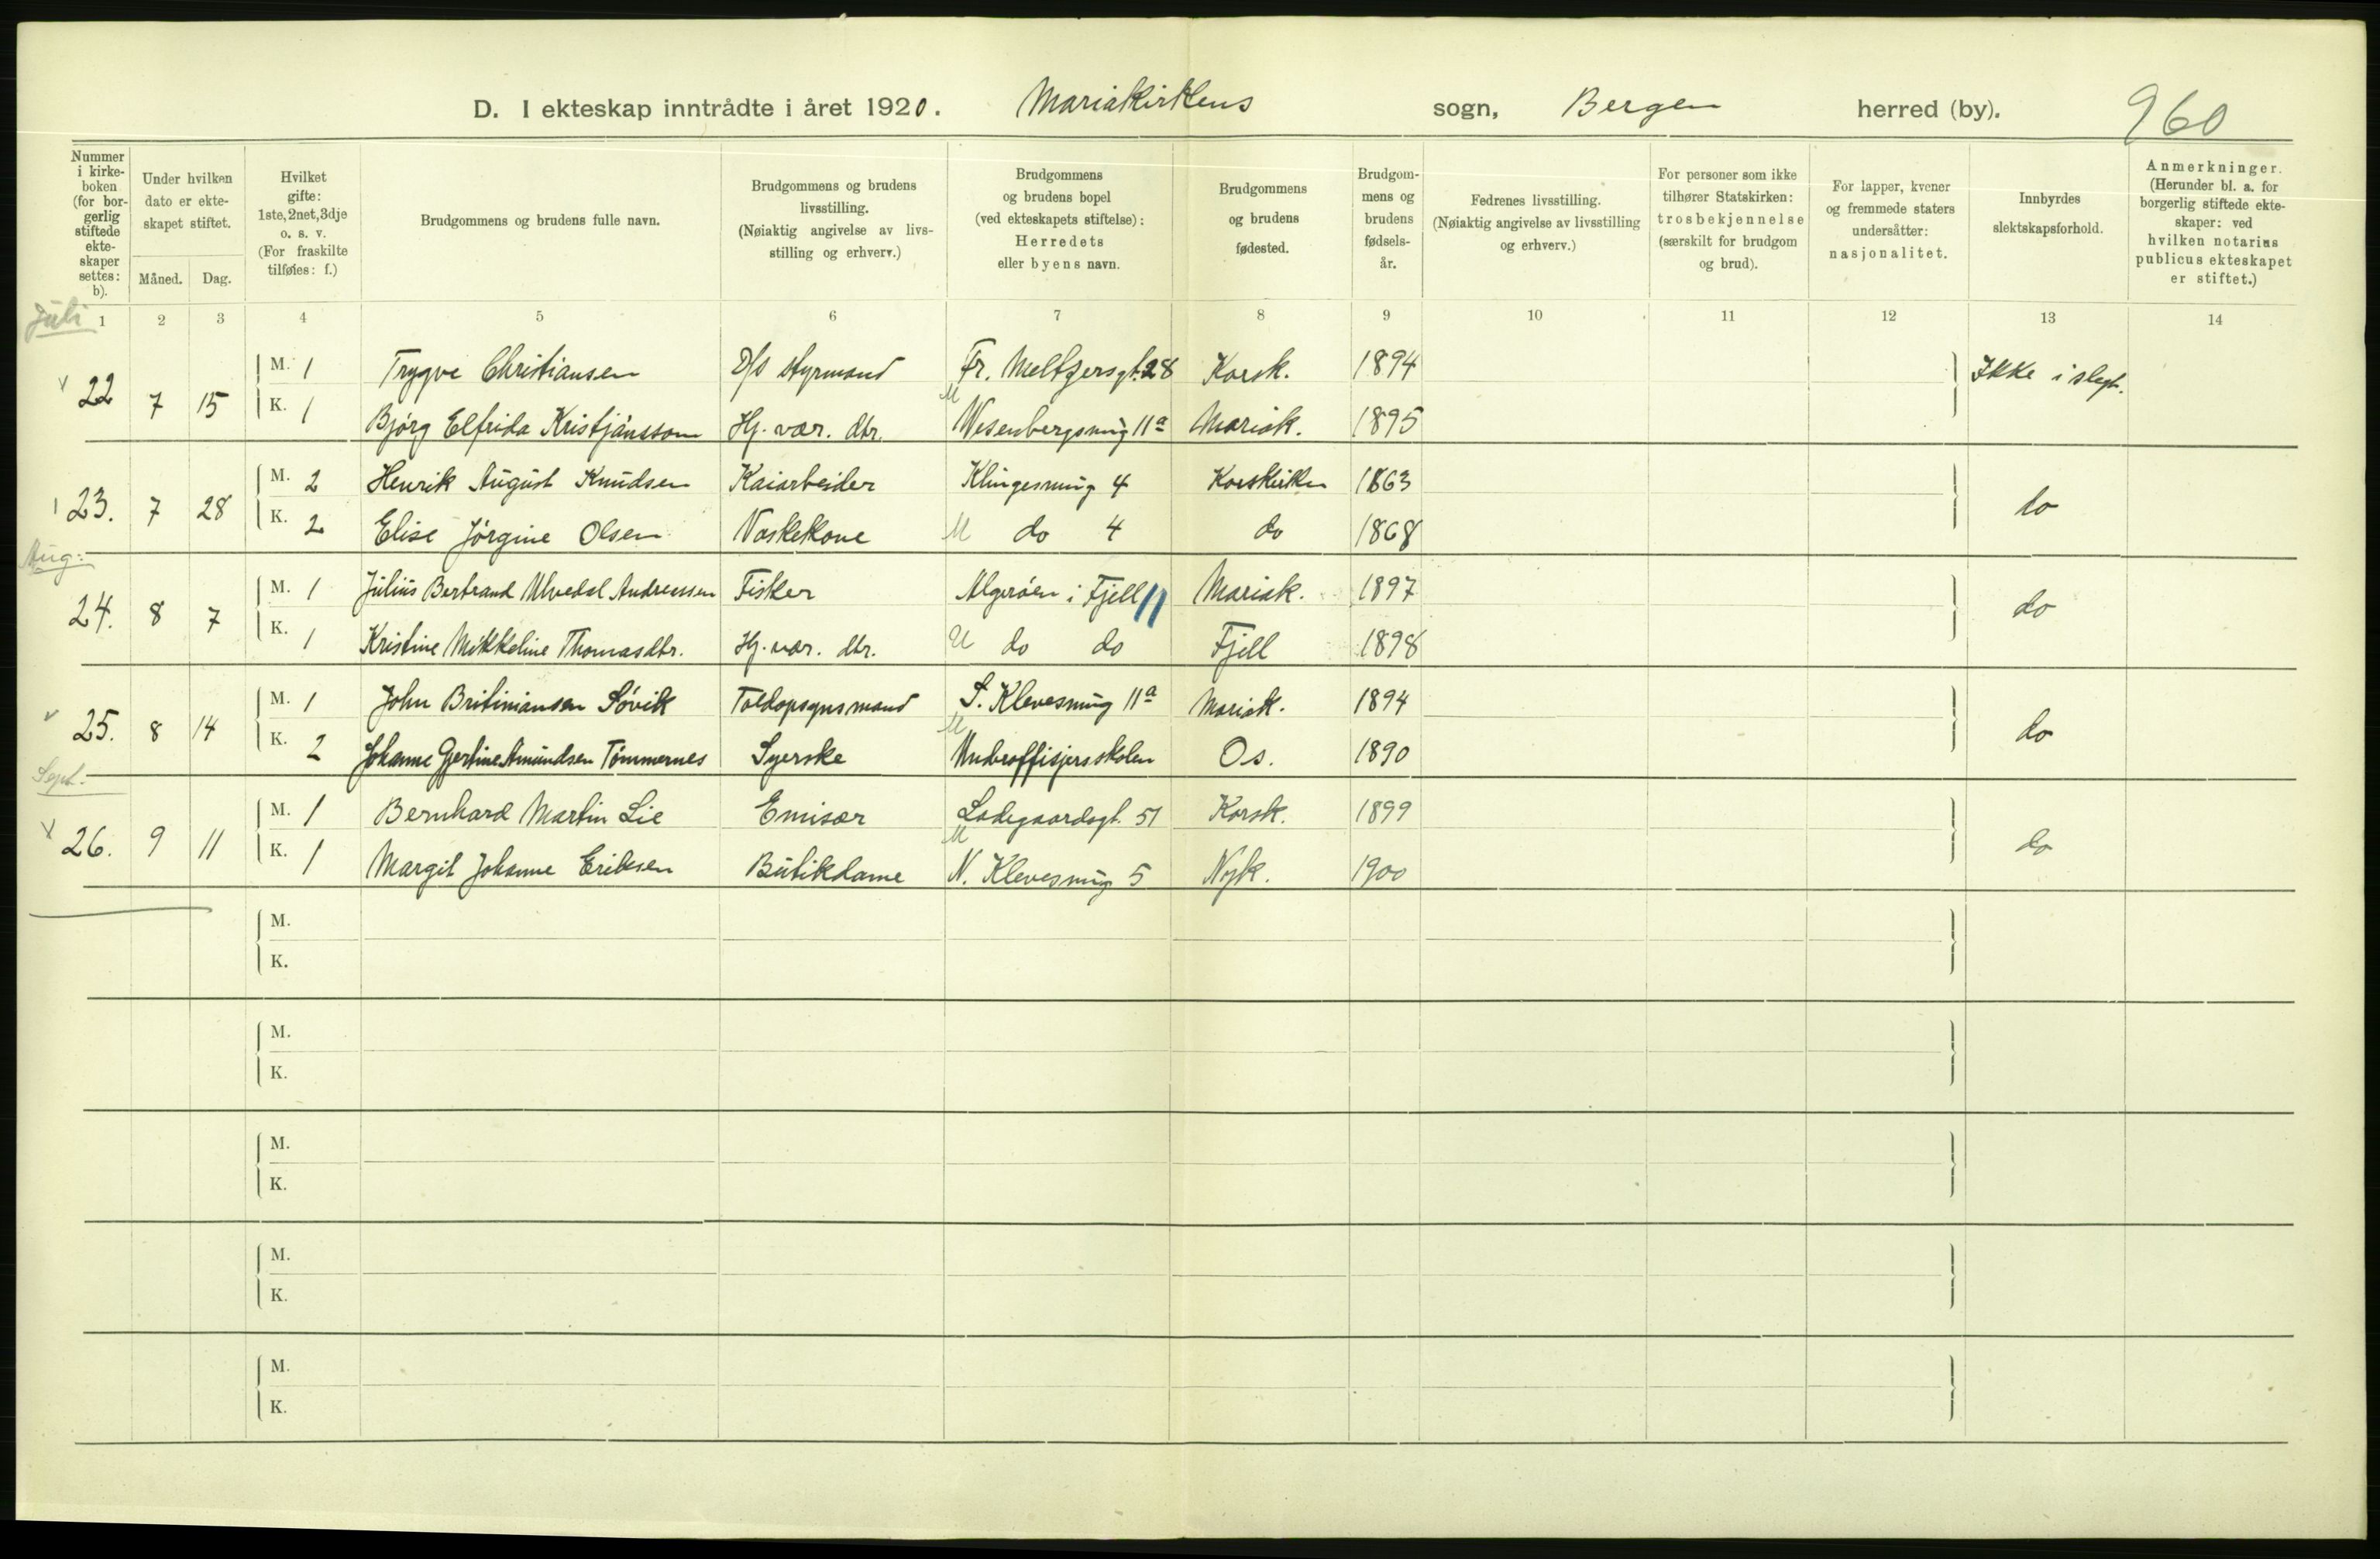 D. I ekteskap inntrådte i året 1920. Mariakirkens sogn, Bergen herred (by). 960
Nummer i kirkeboken (for borgerlig stiftede ekteskaper settes: b).
Under hvilken dato er ekteskapet stiftet.
Måned. Dag.
Hvilket gifte: 1ste, 2net, 3dje o. s. v. (For fraskilte tilføies: f.)
Brudgommens og brudens fulle navn.
Brudgommens og brudens livsstilling. (Nøiaktig angivelse av livsstilling og erhverv.)
Brudgommens og brudens bopel (ved ekteskapets stiftelse): Herredets eller byens navn.
Brudgommens og brudens fødested.
Brudgommens og brudens fødselsår.
Fedrenes livsstilling. (Nøiaktig angivelse av livsstilling og erhverv.)
For personer som ikke tilhører Statskirken: trosbekjennelse (særskilt for brudgom og brud).
For lapper, kvener og fremmede staters undersåtter: nasjonalitet.
Innbyrdes slektskapsforhold.
Anmerkninger. (Herunder bl. a. for borgerlig stiftede ekteskaper: ved hvilken notarius publicus ekteskapet er stiftet.)
Juli
1 2 3 4 5 6 7 8 9 10 11 12 13 14
22 7 15 M. 1 Trygve Christiansen D/S styrmand Fr. Meltzersgt. 28 Korsk. 1894 Ikke i slegt.
K. 1 Bjørg Elfrida Kristjánsson Hj. vær. dtr. Wesenbergsmug 11a Mariak. 1895
23. 7 28 M. 2 Henrik August Knudsen Kaiarbeider Klingesmug 4 Korskirken 1863 do
K. 2 Elise Jørgine Olsen Vaskekone M do 4 do 1868
Aug:
24. 8 7 M. 1 Julius Bertrand Ulvedal Andreassen Fisker Algerøen i Fjell 11 Mariak. 1897 do
K. 1 Kristine Mikkeline Thomasdtr. Hj. vær. dtr. U do do Fjell 1898
25. 8 14 M. 1 John Britiniansen Søvik Toldopsynsmand S. Klevesmug 11a Mariak. 1894 do
K. 2 Johanne Gjertine Amundsen Tømmernes Syerske Underoffisjersskolen Os. 1890
Sept.
26. 9 11 M. 1 Bernhard Martin Lie Emisær Ladegaardsgt. 51 Korsk. 1899 do
K. 1 Margit Johanne Eriksen Butikdame N. Klevesmug 5 Nyk. 1900
M.
K.
M.
K.
M.
K.
M.
K.
M.
K.